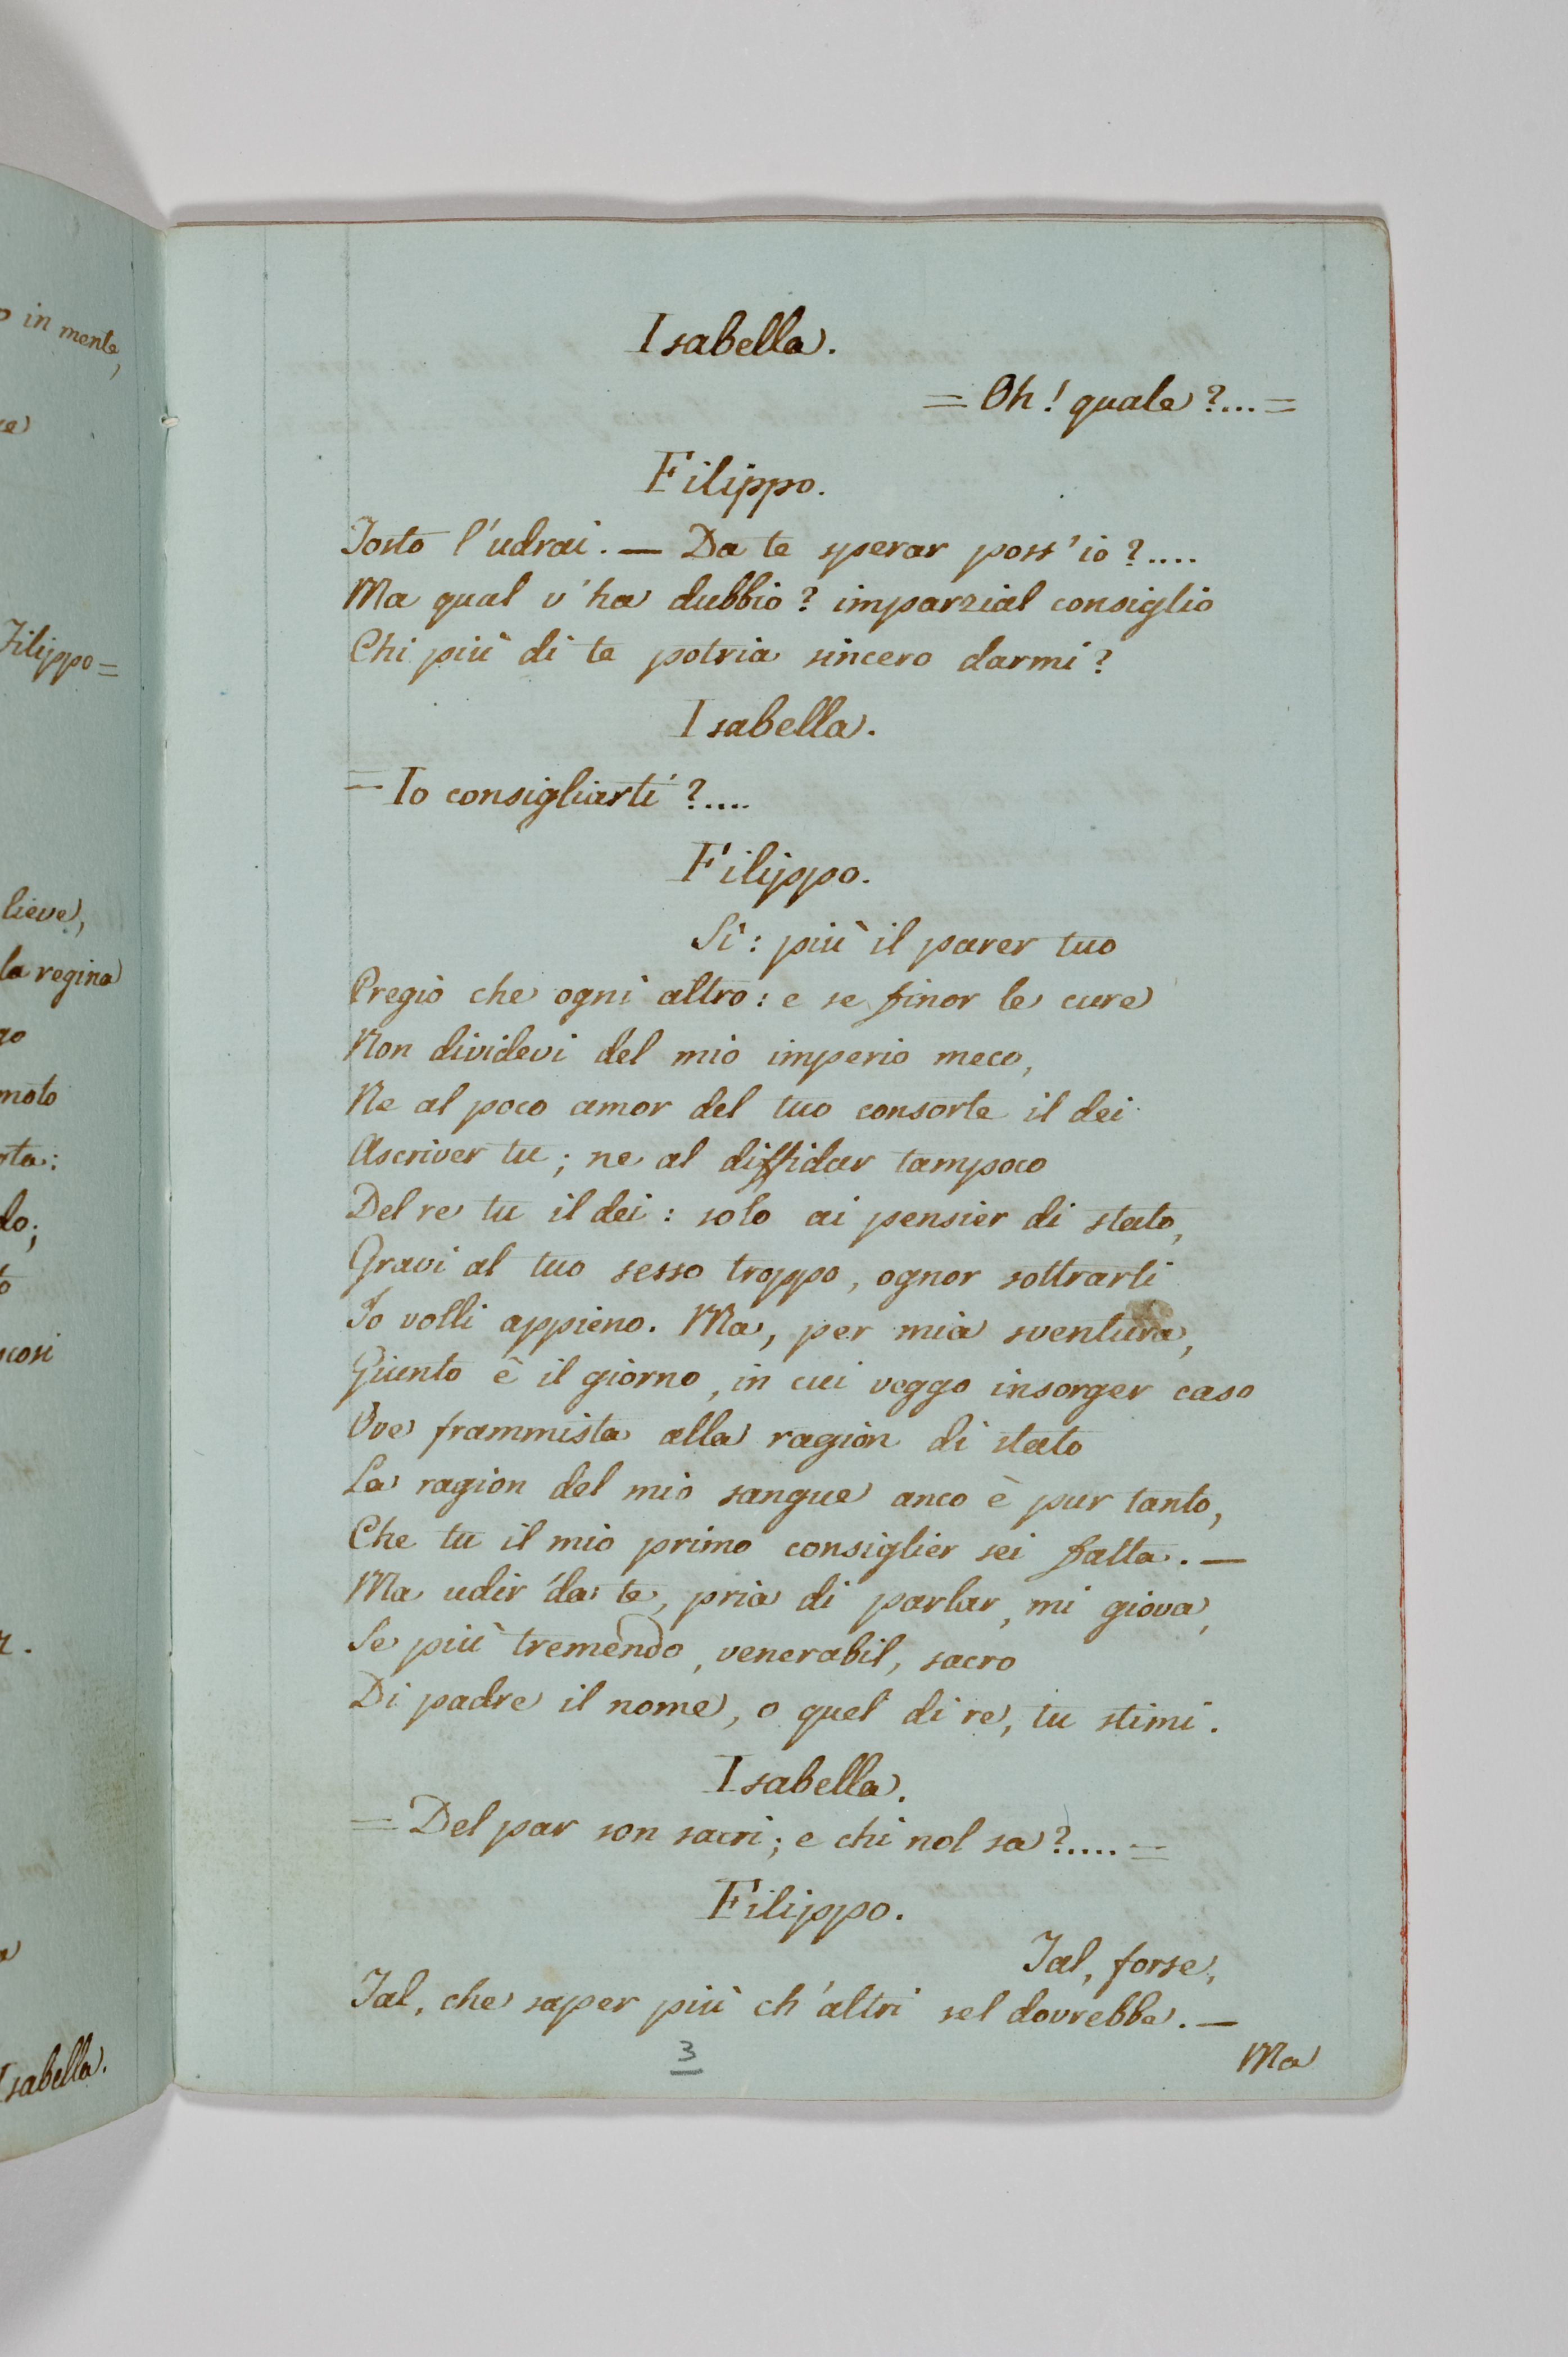 in mente,
Filippo=
lieve,
la regina
moto
Isabella.
Isabella.
= Oh! quale?...=
Filippo.
Tosto l'udrai. — Da te sperar poss'io?....
Ma qual v'ha dubbio? imparzial consiglio
Chi più di te potria sincero darmi?
Isabella.
= Io consigliarti?....
Filippo.
Sì: più il parer tuo
Pregio che ogni altro: e se finor le cure
Non dividevi del mio imperio meco,
Ne al poco amor del tuo consorte il dei
Ascriver tu; ne al diffidar tampoco
Del re tu il dei: solo ai pensier di stato,
Gravi al tuo sesso troppo, ognor sottrarti
Io volli appieno. Ma, per mia sventura,
Giunto è il giorno, in cui veggo insorger caso
Ove frammista alla ragion di stato
La ragion del mio sangue anco è pur tanto,
Che tu il mio primo consiglier sei fatta. —
Ma udir da te, pria di parlar, mi giova,
Se più tremendo, venerabil, sacro
Di padre il nome, o quel di re, tu stimi.
Isabella.
= Del par son sacri; e chi nol sa?.....=
Filippo.
Tal, forse,
Tal, che saper più ch'altri sel dovrebbe. —
3
Ma